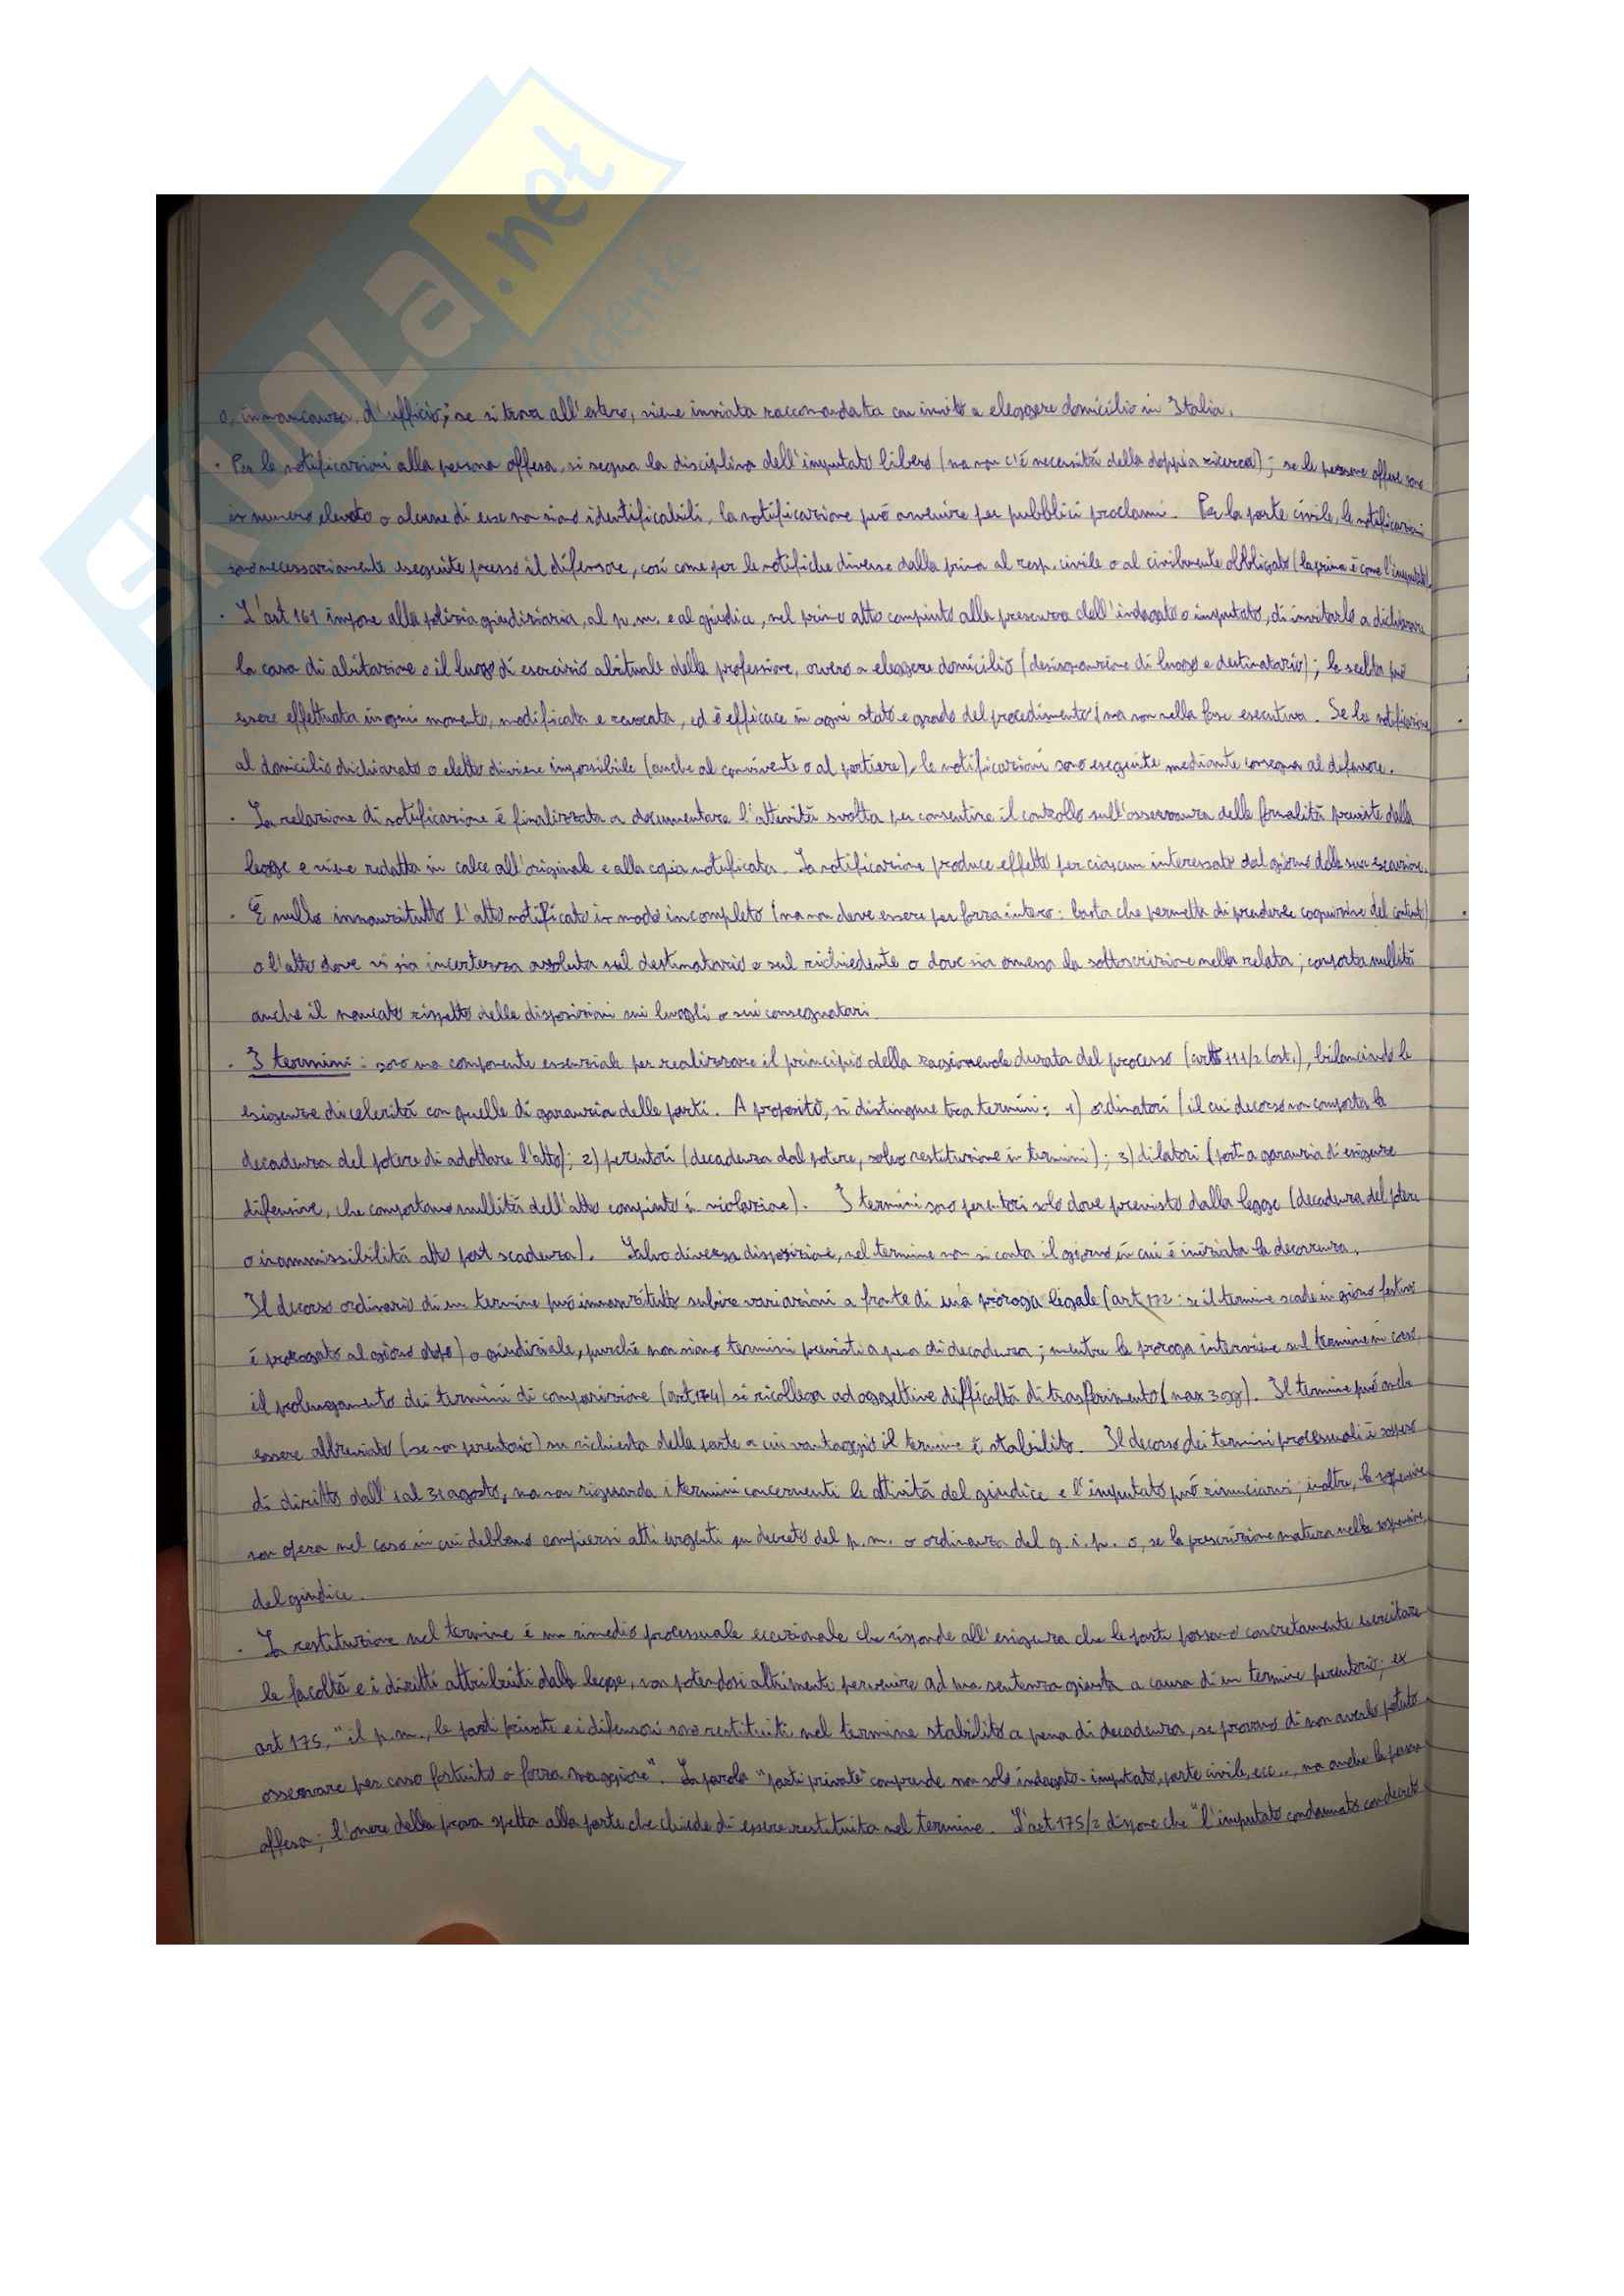 SKUOLa.net
o, in mancanza, d'ufficio; se si trova all'estero, viene inviata raccomandata con invito a eleggere domicilio in Italia.
· Per le notificazioni alla persona offesa, si segue la disciplina dell'imputato libero (ma non c'è necessità della doppia ricerca); se le persone offese sono
in numero elevato o alcune di esse non siano identificabili, la notificazione può avvenire per pubblici proclami. Per la parte civile, le notificazioni
sono necessariamente eseguite presso il difensore, così come per le notifiche diverse dalla prima al resp. civile o al civilmente obbligato (la prima è come l'imputato).
· L'art 161 impone alla polizia giudiziaria, al p.m. e al giudice, nel primo atto compiuto alla presenza dell'indagato o imputato, di invitarlo a dichiarare
la casa di abitazione o il luogo di esercizio abituale della professione, ovvero a eleggere domicilio (designazione di luogo e destinatario); la scelta può
essere effettuata in ogni momento, modificata e revocata, ed è efficace in ogni stato e grado del procedimento (ma non nella fase esecutiva. Se la notificazione
al domicilio dichiarato o eletto diviene impossibile (anche al convivente o al portiere), le notificazioni sono eseguite mediante consegna al difensore.
· La relazione di notificazione è finalizzata a documentare l'attività svolta per consentire il controllo sull'osservanza delle formalità previste dalla
legge e viene redatta in calce all'originale e alla copia notificata. La notificazione produce effetto per ciascun interessato dal giorno della sua esecuzione.
· È nullo innanzitutto l'atto notificato in modo incompleto (ma non deve essere per forza intero: basta che permetta di prendere cognizione del contenuto)
o l'atto dove vi sia incertezza assoluta sul destinatario o sul richiedente o dove sia omessa la sottoscrizione nella relata; comporta nullità
anche il mancato rispetto delle disposizioni sui luoghi o sui consegnatari.
· I termini: sono una componente essenziale per realizzare il principio della ragionevole durata del processo (art 111/2 Cost.), bilanciando le
esigenze di celerità con quelle di garanzia delle parti. A proposito, si distingue tra termini: 1) ordinatori (il cui decorso non comporta la
decadenza del potere di adottare l'atto); 2) perentori (decadenza dal potere, salvo restituzione in termini); 3) dilatori (posti a garanzia di esigenze
difensive, che comportano nullità dell'atto compiuto in violazione). I termini sono perentori solo dove previsto dalla legge (decadenza del potere
o inammissibilità atto post scadenza). Salvo diversa disposizione, nel termine non si conta il giorno in cui è iniziata la decorrenza.
Il decorso ordinario di un termine può innanzitutto subire variazioni a fronte di una proroga legale (art 172: se il termine scade in giorno festivo
è prorogato al giorno dopo) o giudiziale, purché non siano termini previsti a pena di decadenza; mentre la proroga interviene sul termine in corso,
il prolungamento dei termini di comparizione (art 174) si ricollega ad oggettive difficoltà di trasferimento (max 3 gg). Il termine può anche
essere abbreviato (se non perentorio) su richiesta della parte a cui vantaggio il termine è stabilito. Il decorso dei termini processuali è sospeso
di diritto dall'1 al 31 agosto, ma non riguarda i termini concernenti le attività del giudice e l'imputato può rinunciarvi; inoltre, la sospensione
non opera nel caso in cui debbano compiersi atti urgenti su decreto del p.m. o ordinanza del g.i.p. o, se la prescrizione matura nella sospensione,
del giudice.
· La restituzione nel termine è un rimedio processuale eccezionale che risponde all'esigenza che le parti possano concretamente esercitare
le facoltà e i diritti attribuiti dalla legge, non potendosi altrimenti pervenire ad una sentenza giusta a causa di un termine perentorio; ex
art 175, "il p.m., le parti private e i difensori sono restituiti nel termine stabilito a pena di decadenza, se provano di non averlo potuto
osservare per caso fortuito o forza maggiore". La parola "parti private" comprende non solo indagato-imputato, parte civile, ecc..., ma anche la persona
offesa; l'onere della prova spetta alla parte che chiede di essere restituita nel termine. L'art 175/2 dispone che "l'imputato condannato con decreto